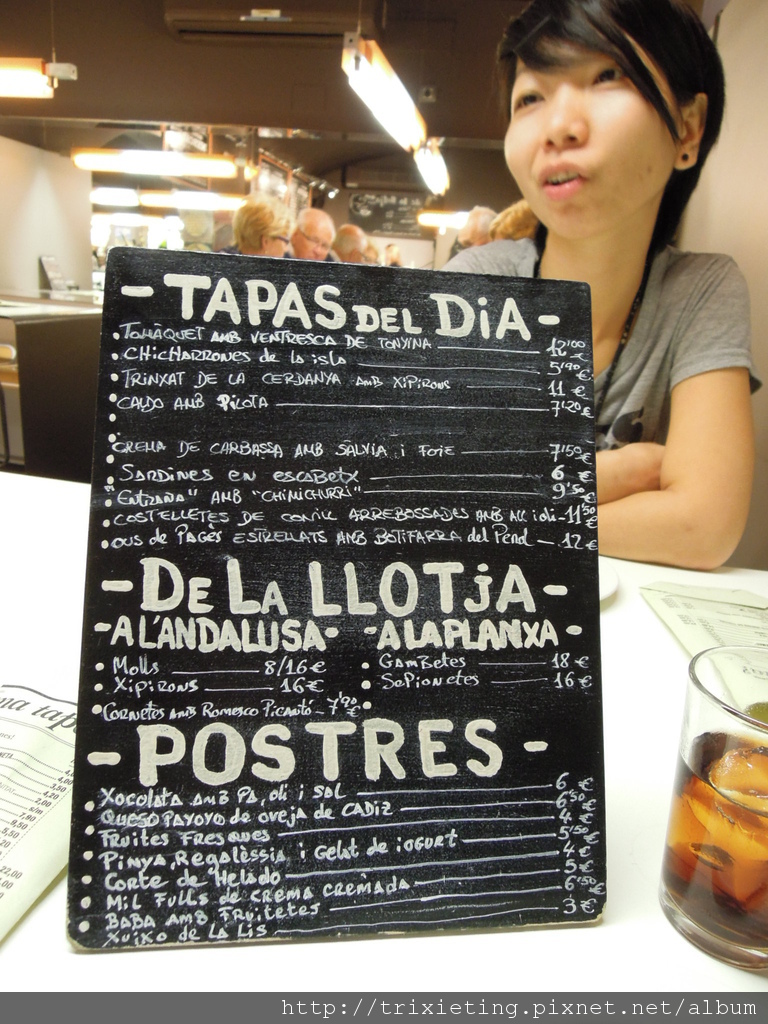 - TAPAS DEL DiA -
TOMÀQUET AMB VENTRESCA DE TONYINA 12'00 €
CHICHARRONES de la isla 5'90 €
TRINXAT DE LA CERDANYA amb XIPIRONS 11 €
CALDO AMB PILOTA 7'20 €
CREMA DE CARBASSA AMB SÀLVIA i FOIE 7'50 €
SARDINES EN escabetx 6 €
"ENTRAÑA" AMB "CHIMICHURRI" 9'50 €
COSTELLETES DE CONILL ARREBOSSADES AMB ALL i oli - 11'50 €
OUS de Pages ESTRELLATS AMB BOTIFARRA del Perol - 12 €
- De LA LLOTjA -
- A L'ANDALUSA - - A LA PLANXA -
Molls 8/16 € GAMBETES 18 €
XIPIRONS 16 € SEPIONETES 16 €
CORNETES AMB ROMESCO PICANTÓ - 7'90 €
- POSTRES -
XOCOLATA AMB PA, oli i SAL 6 €
QUESO PAYOYO de oveja de CADIZ 6'50 €
FRUITES FRESQUES 4 €
PINYA, Regalèssia i Gelat de iOGURT 5'50 €
CORTE de HELADO 4 €
MIL FULLS de CREMA CREMADA 5 €
BABA AMB FRUITETES 6'50 €
XUIXO DE LA LIS 3 €
http://trixieting.pixnet.net/album